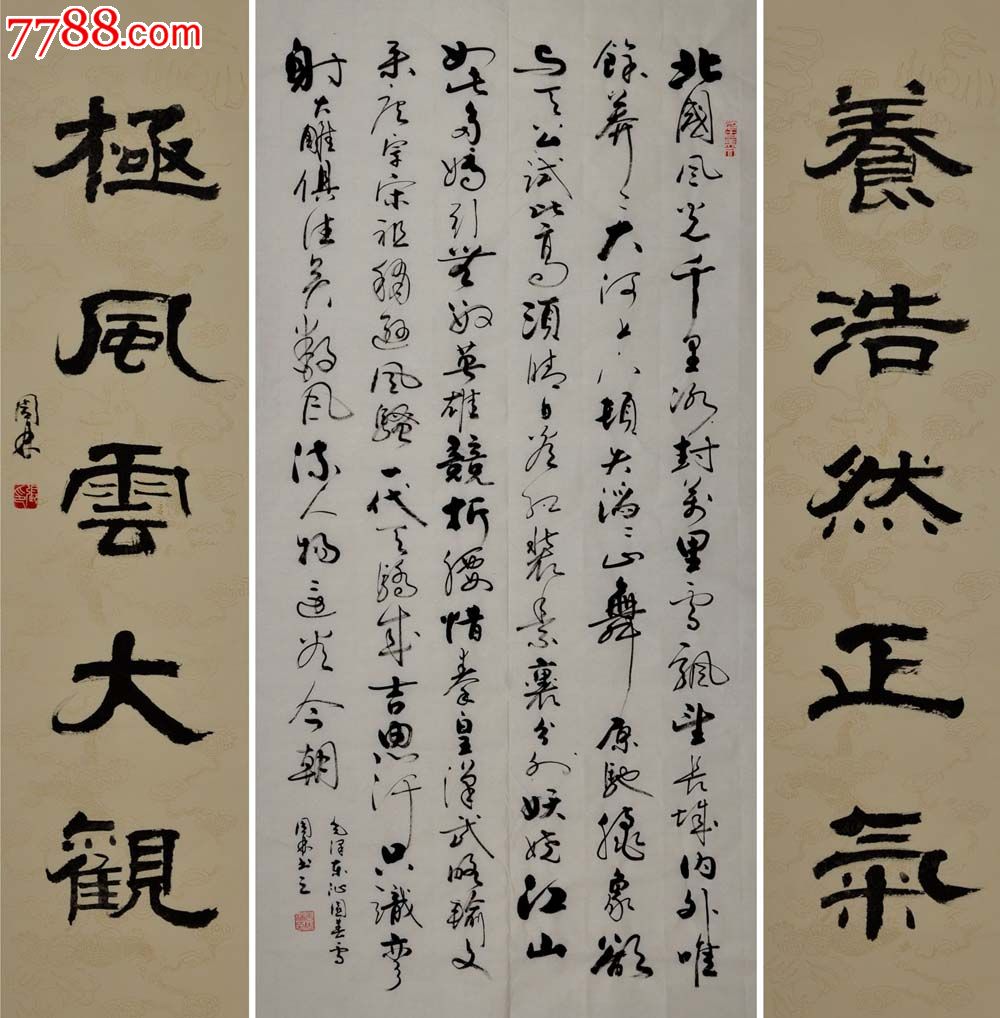 7788.com
養浩然正氣
北國風光千里冰封萬里雪飄望長城內外唯
餘莽〻大河上下頓失滔〻山舞原馳臘象欲
與天公試比高須晴日看紅裝素裹分外妖嬈江山
如此多嬌引無數英雄競折腰惜秦皇漢武略輸文
采唐宗宋祖稍遜風騷一代天驕成吉思汗只識彎
射大雕俱往矣數風流人物還看今朝
毛澤東沁園春雪
書之
極風雲大觀